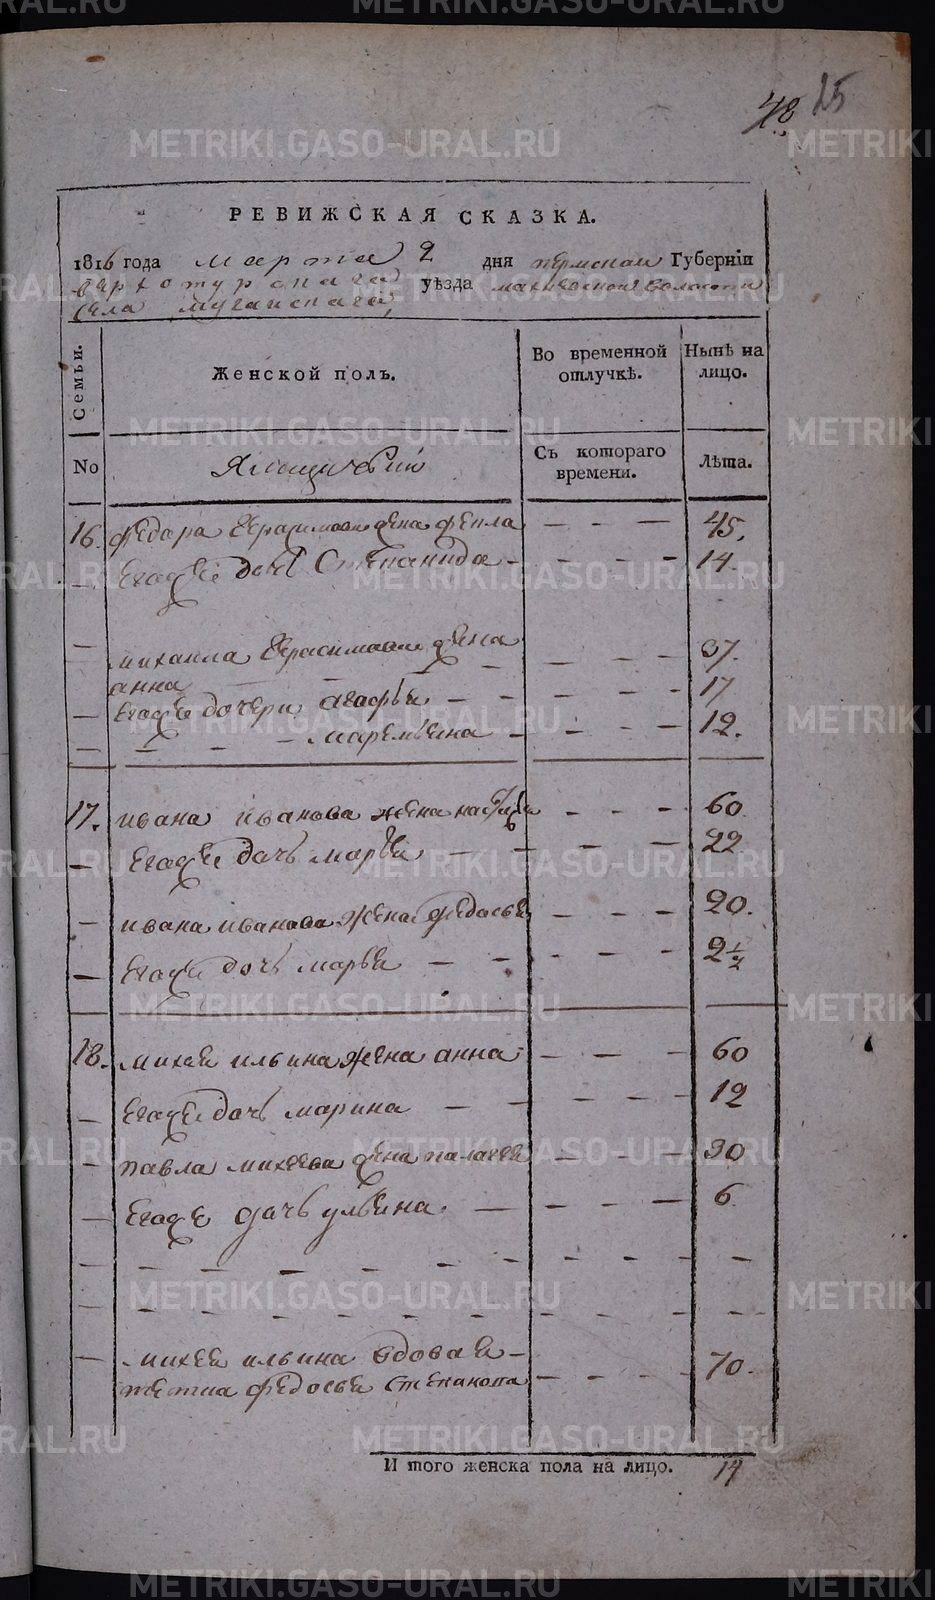 48. 25
РЕВИЖСКАЯ СКАЗКА.
1816 года марта 2 дня пермскои Губернїи
верхотурскага уѣзда махневскои Волости
Села мугаискага,
Семьи.
Женской полъ.
Во временной отлучкѣ.
Нынѣ на лицо.
No
Ямщичей
Съ котораго времени.
Лѣта.
16. федора Герасимова жена фекла — — — 45.
— Егоже дочь Степанида — — — 14.
— михаила Герасимова жена
анна — — — 37.
— Егоже дочери агафья — — — 17
— — — маремьяна — — — 12.
17. ивана иванова жена — — — 60.
— Егоже дочь марья — — — 22
— ивана иванова жена федосья — — — 20.
— Егоже дочь марья — — — 2½
18. михея ильина жена анна — — — 60
— Егоже дочь марина — — — 12
— павла михеева жена палагея — — — 30
— Егоже дочь ульяна — — — 6
— михея ильина вдовая
тетка федосья степанова — — — 70.
И того женска пола на лицо. 14
METRIKI.GASO-URAL.RU